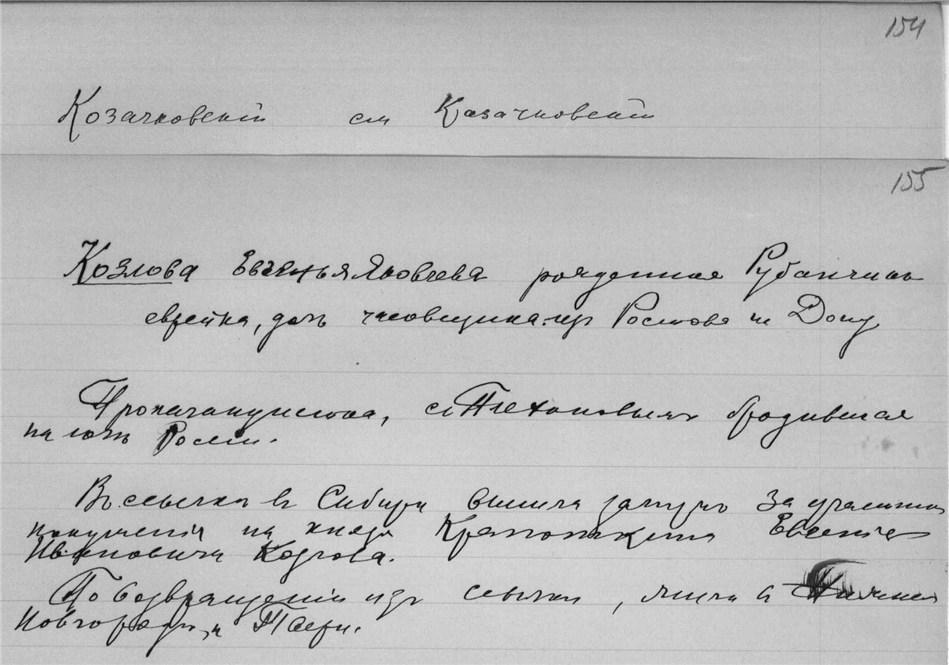 154
Козачковскій см Казачковскій
155
Козлова Евгенья Яковлевна рожденная Рубанчикъ
еврейка, дочь часовщика изъ Ростова на Дону
Пропагандистка, съ Плехановымъ бродившая
на югѣ Россіи.
Въ ссылкѣ въ Сибири вышла замужъ за участника
покушенія на князя Крапоткина Евгенія
Ивановича Козлова.
По возвращеніи изъ ссылки, жила въ Нижнем
Новгородѣ и Твери.